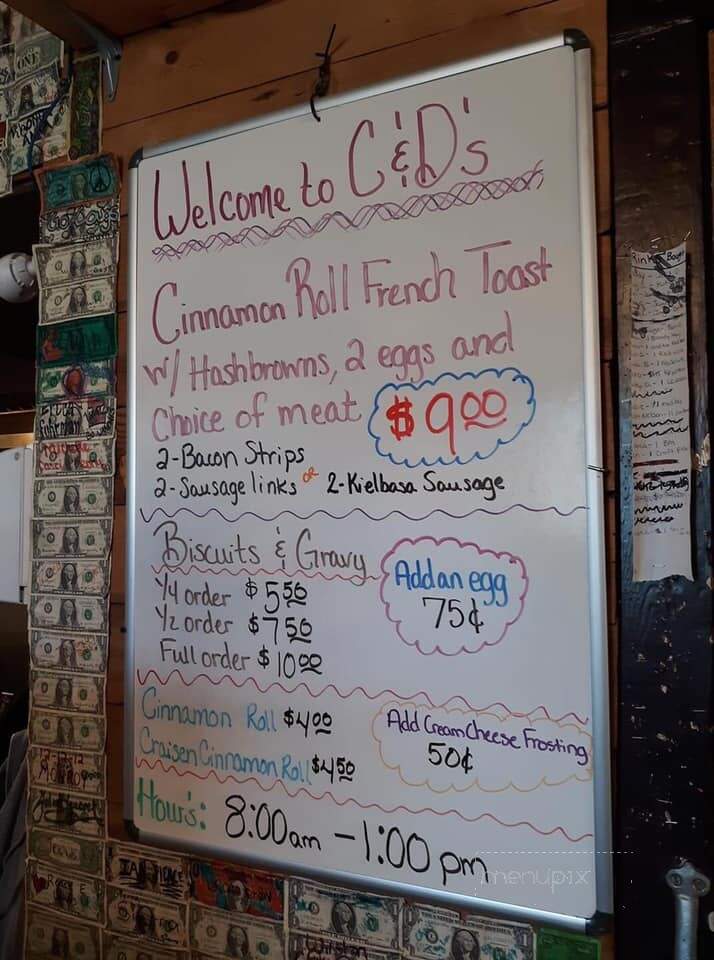 Welcome to C&D's
Cinnamon Roll French Toast
w/ Hashbrowns, 2 eggs and
Choice of meat $9.00
2-Bacon Strips
2-Sausage links or 2-Kielbasa Sausage
Biscuits & Gravy
1/4 order $5.50
1/2 order $7.50
Full order $10.00
Add an egg
75¢
Cinnamon Roll $4.00
Craisen Cinnamon Roll $4.50
Add Cream Cheese Frosting
50¢
Hour's: 8:00am - 1:00 pm
menupix